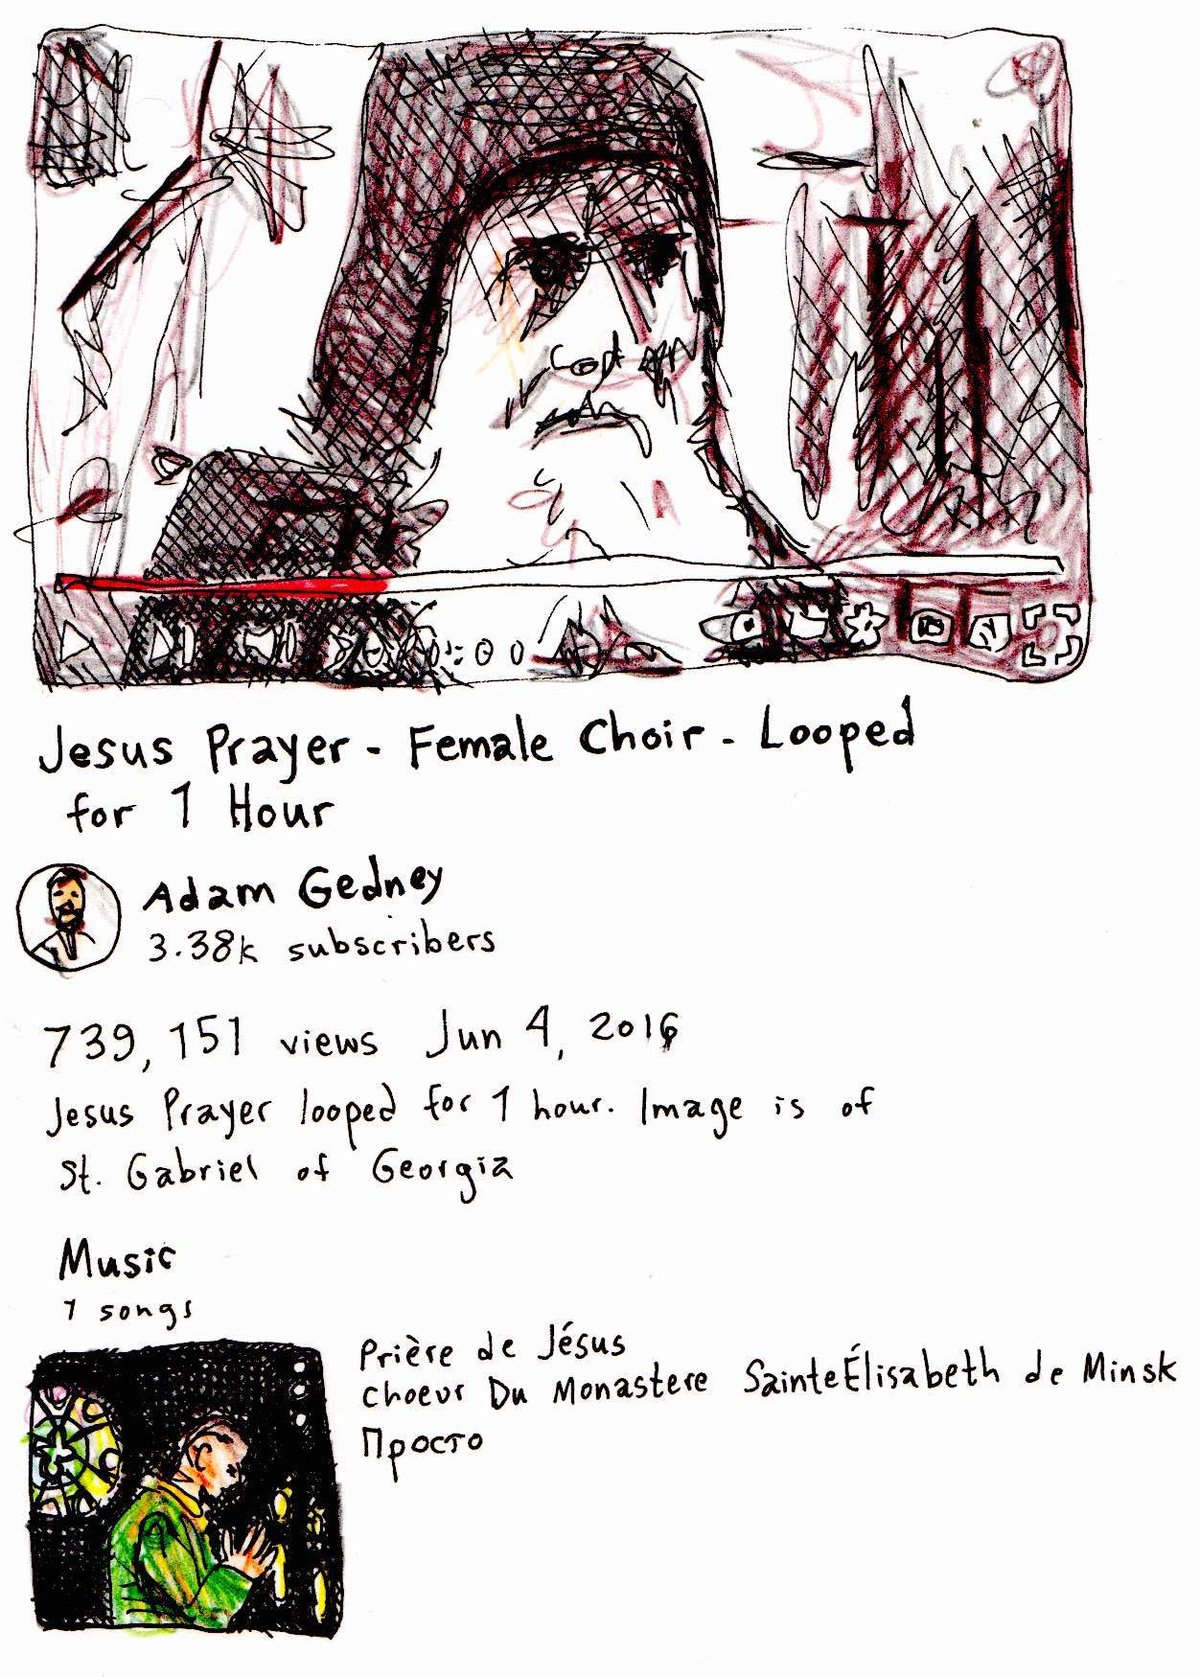 Jesus Prayer - Female Choir - Looped
for 1 Hour
Adam Gedney
3.38k subscribers
739,151 views Jun 4, 2016
Jesus Prayer looped for 1 hour. Image is of
St. Gabriel of Georgia
Music
1 songs
Prière de Jésus
Choeur Du Monastere SainteÉlisabeth de Minsk
Просто